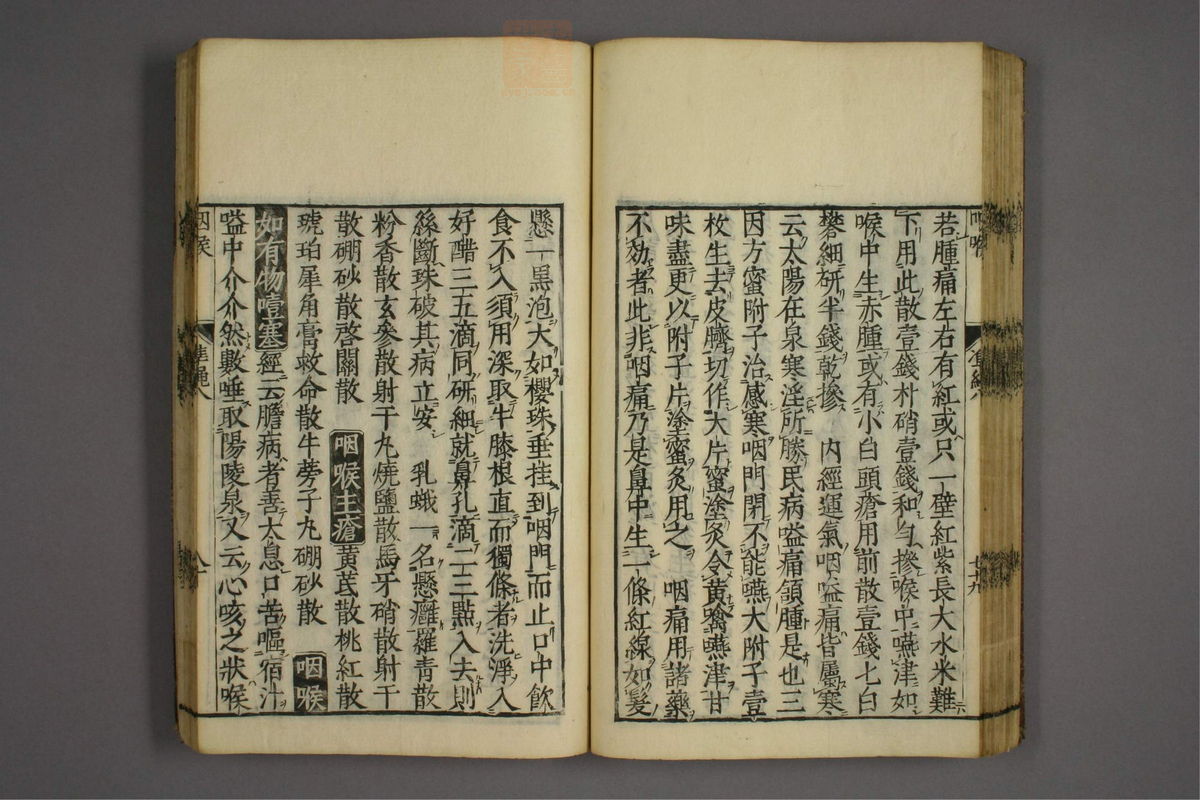 若腫痛左右有紅或只一壁紅紫長大水米難
下用此散壹錢朴硝壹錢和勻摻喉中嚥津如
喉中生赤腫或有小白頭瘡用前散壹錢匕白
礬細研半錢乾摻　內經運氣咽嗌痛皆屬寒
云太陽在泉寒淫所勝民病嗌痛頷腫是也三
因方蜜附子治感寒咽門閉不能嚥大附子壹
枚生去皮臍切作大片蜜塗炙令黃噙嚥津甘
味盡更以附子片塗蜜炙用之　咽痛用諸藥
不効者此非咽痛乃是鼻中生一條紅線如髮
懸一黑泡大如櫻珠垂挂到咽門而止口中飲
食不入須用深取牛膝根直而獨條者洗淨入
好醋三五滴同研細就鼻孔滴二三點入去則
絲斷珠破其病立安　乳蛾一名懸癰羅青散
粉香散玄參散射干丸燒鹽散馬牙硝散射干
散硼砂散啓關散　咽喉生瘡黃芪散桃紅散
琥珀犀角膏救命散牛蒡子丸硼砂散　咽喉
如有物噎塞經云膽病者善太息口苦嘔宿汁
嗌中介介然數唾取陽陵泉又云心咳之狀喉
咽喉
準繩八